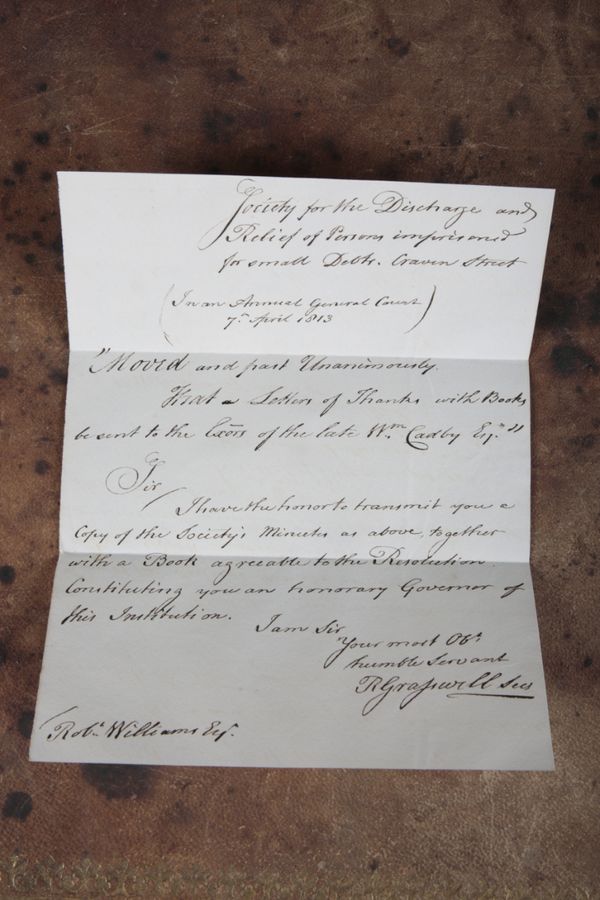 Society for the Discharge and
Relief of Persons imprisoned
for small Debts. Craven Street
(In an Annual General Court
7th April 1813)
"Moved and past Unanimously.
That Letters of Thanks with Books
be sent to the Exors of the late Wm Cadby Esqr"
Sir
I have the honor to transmit you a
Copy of the Society's Minutes as above, together
with a Book agreeable to the Resolution.
Constituting you an honorary Governor of
this Institution.
I am Sir
Your most Obt
humble Servant
Secy
Robt Williams Esqr.